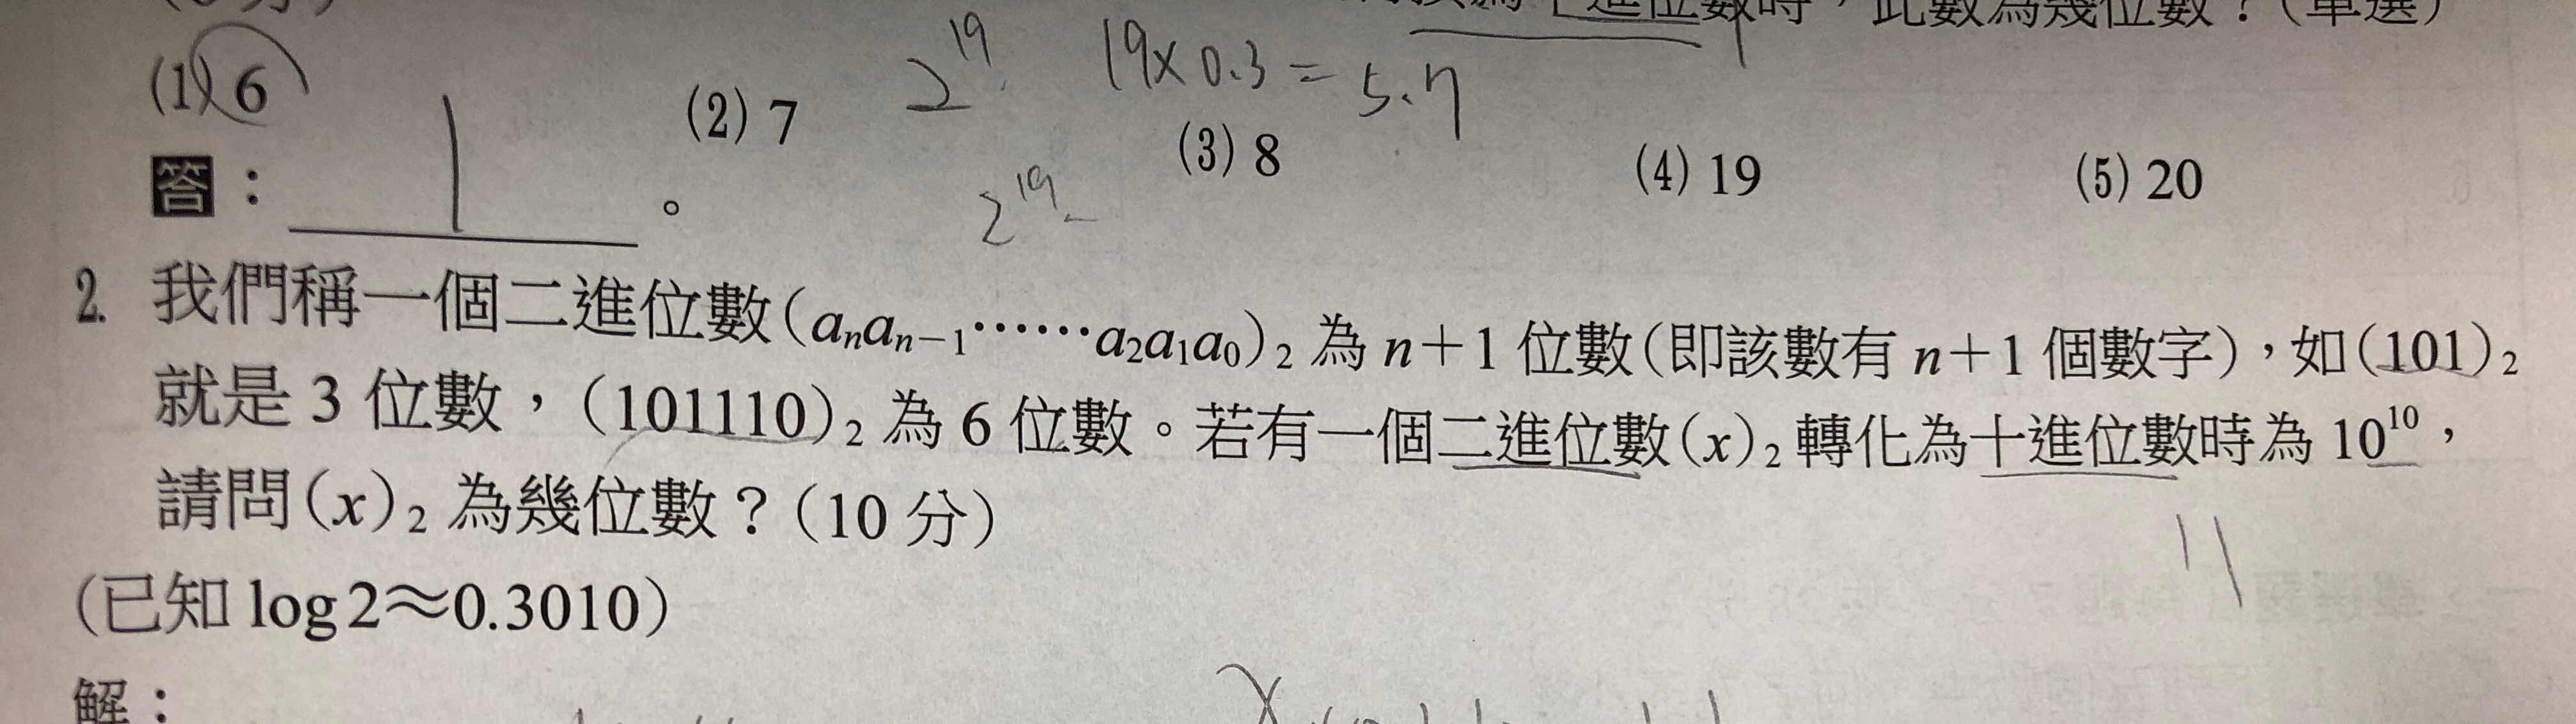 進位數時，此數為幾位數？(單選)
(1) 6 (2) 7 (3) 8 (4) 19 (5) 20
2^19 19×0.3=5.7
答：1。
2^19
2. 我們稱一個二進位數(aₙaₙ₋₁⋯⋯a₂a₁a₀)₂ 為 n＋1 位數(即該數有 n＋1 個數字)，如(101)₂
就是 3 位數，(101110)₂ 為 6 位數。若有一個二進位數(x)₂ 轉化為十進位數時為 10¹⁰，
請問(x)₂ 為幾位數？(10 分)
11
(已知 log2≈0.3010)
解：